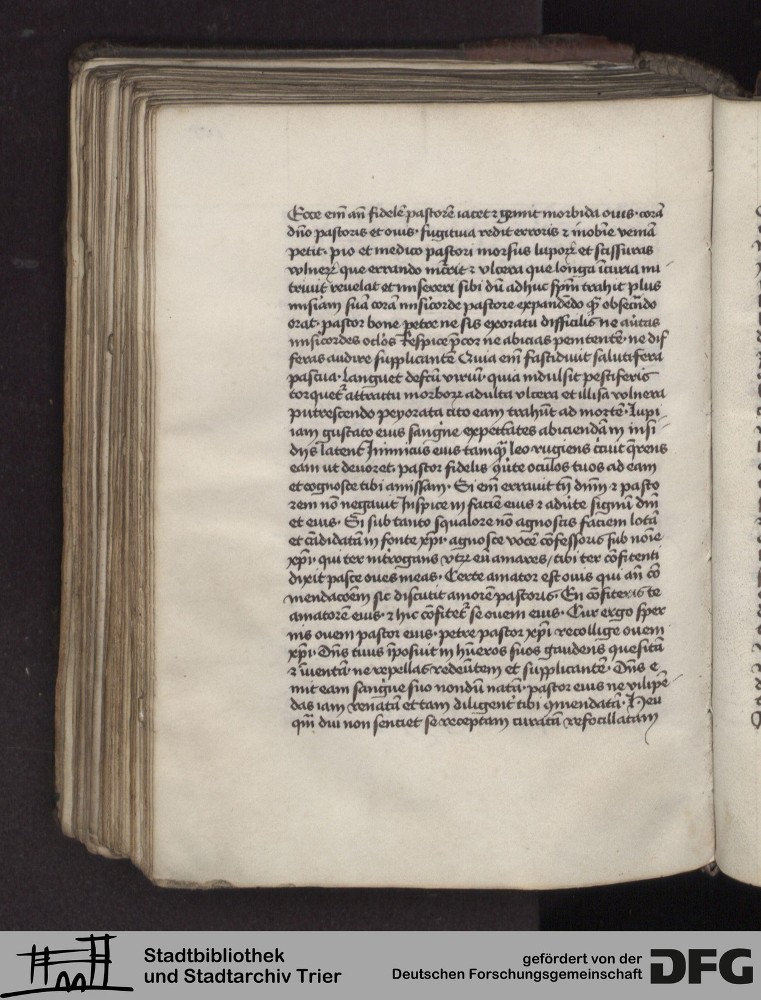 Ecce em̄ an̄ fidelē pastorē iacet ⁊ gemit morbida ouis · corā
dn̄o pastoris et ouis · fugitiua redit erroris ⁊ īnobīe veniā
petit · pio et medico pastori morsus lupoꝝ et scissuras
vulneꝝ que errando īcurrit ⁊ vlcera que longa īcuria nu
triuit reuelat et misereri sibi dū adhuc spm̄ trahit plus
miseriam suā corā misericorde pastore expandēdo qͣ̄ obsecrādo
orat · pastor bone petre ne sis exoratu difficilis ne aūtas
misericordes oclōs Respice p̄cor ne abicias penitentē · ne dif
feras audire supplicantē Quia em̄ fastidiuit salutifera
pascua · languet defctū viriū · quia indulsit pestiferis
torquet᷑ attractu morboꝝ adulta vlcera et illisa vulnera
putrescendo peyorata cito eam trahūt ad mortē · Lupi
iam gustato eius sanguīe expectātes abiciendā in insi
dijs latent Inimicus eius tamqͣ̄ leo rugiens circuit q̄rens
eam ut deuoret · pastor fidelis q̄uūte oculos tuos ad eam
et cognosce tibi amissam · Si em̄ errauit tn̄ dnm̄ ⁊ pasto
rem nō negauit Inspice in faciē eius ⁊ aduīte signū dn̄i
et eius · Si sub tanto squalore nō agnoscis faciem lotā
et cādidatā in fonte xp̄i · agnosce vocē cōfessoris sub noīe
xp̄i · qui ter īnterrogans vtꝝ eū amares / tibi ter cōfitenti
dixit pasce oues meas · Certe amator est ouis qui an̄ cō
mendacoēm sic discutit amorē pastoris · En cōfiteris te
amatorē eius · ⁊ hic cōfitet᷑ se ouem eius · Cur ergo sper
nis ouem pastor eius · petre pastor xp̄i recollige ouem
xp̄i · Dn̄s tuus īposuit in hūeros suos gaudens quesitā
⁊ īuentā ne repellas redeūtem et supplicantē · Dn̄s e
mit eam sanguīe suo nondū natā · pastor eius ne vilipē
das iam renatā et tam diligent᷑ tibi 9mendatā · Heu
qm̄ diu non sentiet se receptam curatā refocillatam
Stadtbibliothek
und Stadtarchiv Trier
gefördert von der
Deutschen Forschungsgemeinschaft
DFG